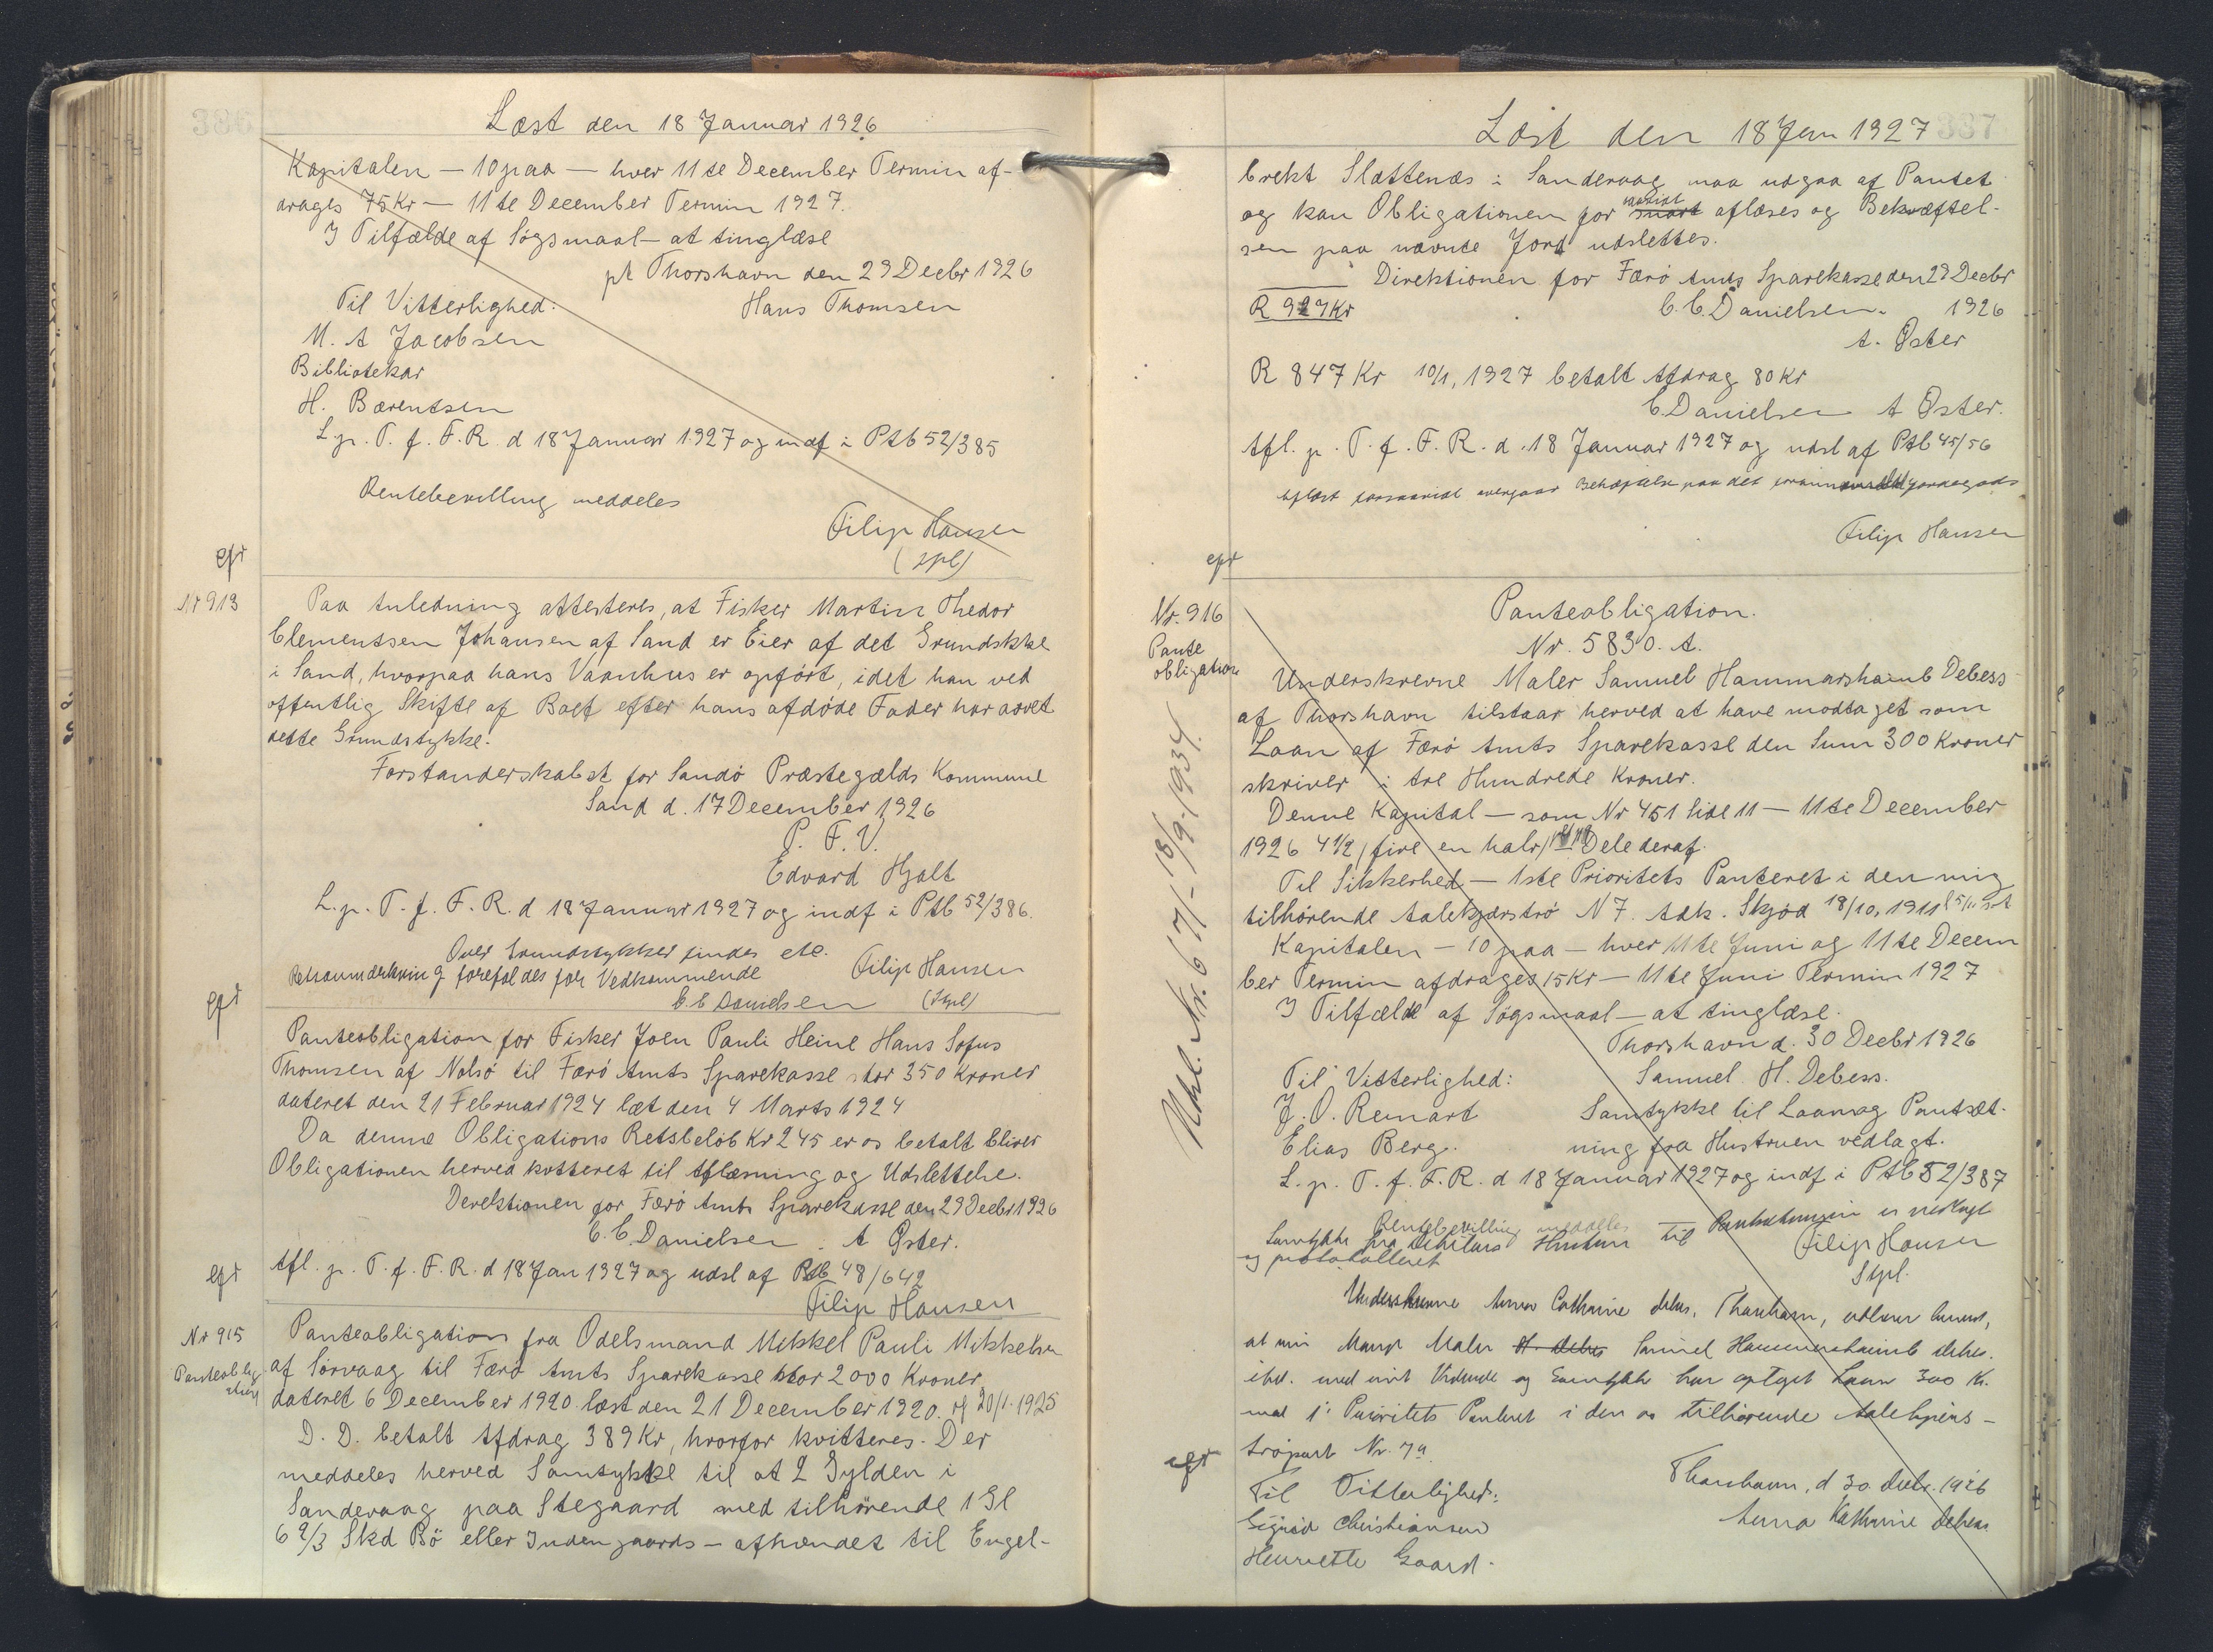 386
Læst den 18 Januar 1926
Kapitalen — 10 paa — hver 11te December Termin af-
drages 75 Kr — 11te December Termin 1927.
I Tilfælde af Søgsmaal — at tinglæse
pt Thorshavn den 29 Decbr 1926
Til Vitterlighed: Hans Thomsen
M. A Jacobsen
Bibliotekar
H. Bærentsen
L. p. T. f. F. R. d 18 Januar 1927 og indf i Ptb 52/385
Rentebevilling meddeles
Filip Hansen
(spl)
epr
Nr 913
Paa Anledning attesteres, at Fisker Martin Thedor
Clementsen Johansen af Sand er Eier af det Grundstkke
i Sand, hvorpaa hans Vaanhus er opført, idet han ved
offentlig Skifte af Boet efter hans afdøde Fader har arvet
dette Grundstykke.
Forstanderskabet for Sandø Præstegælds Kommune
Sand d. 17 December 1926
P. F. V.
Edvard Hjalt
L. p. T. f. F. R. d 18 Januar 1927 og indf i Ptb 52/386.
Over Grundstykket findes etc.
Retsanmærkning forefaldes for Vedkommende Filip Hansen
C. C Danielsen (Spl)
epr
Panteobligation for Fisker Joen Pauli Heine Hans Sofus
Thomsen af Nolsø til Færø Amts Sparekasse stor 350 Kroner
dateret den 21 Februar 1924 læt den 4 Marts 1924
Da denne Obligations Restbeløb Kr 245 er os betalt bliver
Obligationen herved kvitteret til Aflæsning og Udslettelse.
Derektionen for Færø Amts Sparekasse den 29 Decbr 1926
C. C. Danielsen. A Øster.
epr
Afl. p. T. f. F. R. d 18 Jan 1927 og udsl af Ptb 48/642
Filip Hansen
Nr 915
Panteoblig
ation
Panteobligation fra Odelsmand Mikkel Pauli Mikkelsen
af Sørvaag til Færø Amts Sparekasse stor 2000 Kroner
dateret 6 December 1920 læst den 21 December 1920. og 20/1-1925
D. D. betalt Afdrag 389 Kr, hvorfor kvitteres. Der
meddeles herved Samtykke til at 2 Gylden i
Sandevaag paa Stegaard med tilhørende 1 Gl
6 2/3 Skd Bø eller Indengaards — afhændet til Engel-
337
Læst den 18 Jan 1927
brekt Slættenæs i Sandevaag maa udgaa af Pantet
og kan Obligationen for snart aflæses og Bekræftel-
sen paa nævnte Jord udslettes.
Direktionen for Færø Amts Sparekasse den 29 Decbr
R 927 Kr C. C. Danielsen. 1926
A. Øster
R 847 Kr 10/1, 1927 betalt Afdrag 80 Kr
C. Danielsen A Øster.
Afl. p. T. f. F. R. d. 18 Januar 1927 og udsl af Ptb 45/56
Filip Hansen
epr
Nr. 916
Pante
obligation
Panteobligation.
Nr. 5830. A.
Underskrevne Maler Samuel Hammarshaimb Debess
af Thorshavn tilstaar herved at have modtaget som
Laan af Færø Amts Sparekasse den Sum 300 Kroner
skriver i tre Hundrede Kroner.
Denne Kapital — som Nr 451 Side 11 — 11te December
1926 4 1/2 / fire en halv / Dele deraf.
Til Sikkerhed — 1ste Prioritets Panteret i den mig
tilhørende Aalekjærstrø N 7. Adk. Skjød 18/10, 1911
Kapitalen — 10 paa — hver 11te Juni og 11te Decem
ber Termin afdrages 15 Kr — 11te Juni Termin 1927
I Tilfælde af Søgsmaal — at tinglæse.
Thorshavn d. 30 Decbr 1926
Til Vitterlighed: Samuel H. Debess.
J. O. Remart Samtykke til Laan og Pantsæt-
Elias Berg. ning fra Hustruen vedlagt.
L. p. T. f. F. R. d 18 Januar 1927 og indf i Ptb 52/387
Rentebevilling meddeles
Samtykke fra Debitors Hustru til Pantsætningen er vedlagt
og protokolleret Filip Hansen
Spl.
Underskrevne Anna Cathrine Debes, Thorshavn, erklærer herved,
at min Mand Maler H. Debes Samuel Hammershaimb Debes.
ibd. med mit Vidende og Samtykke har optaget Laan 300 Kr.
mod 1' Prioritets Panteret i den os tilhørende Aalekjærs-
trøpart Nr. 7a
epr
Til Vitterlighed: Thorshavn, d 30. Decbr. 1926
Sigrid Christiansen Anna Kathrine Debess
Henriette Gaard.
Udsl. Nr. 671/- 18/9-1934.